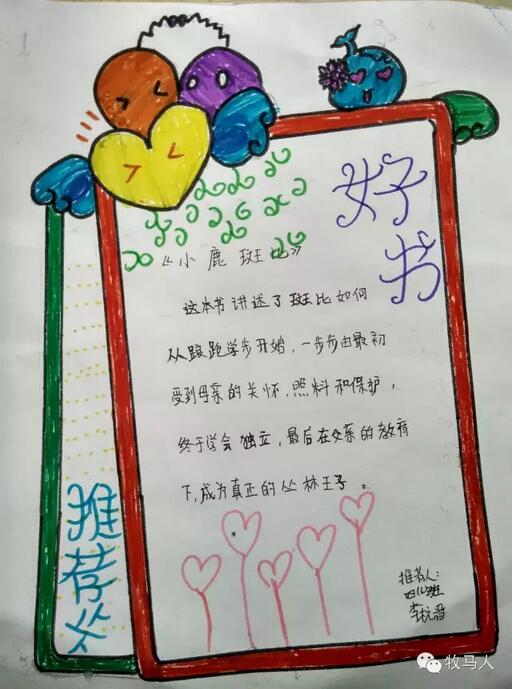 好书
推荐卡
《小鹿斑比》
这本书讲述了班比如何
从踉跄学步开始，一步步由最初
受到母亲的关怀、照料和保护，
终于学会独立，最后在父亲的教育
下，成为真正的丛林王子。
推荐人：
牧马人